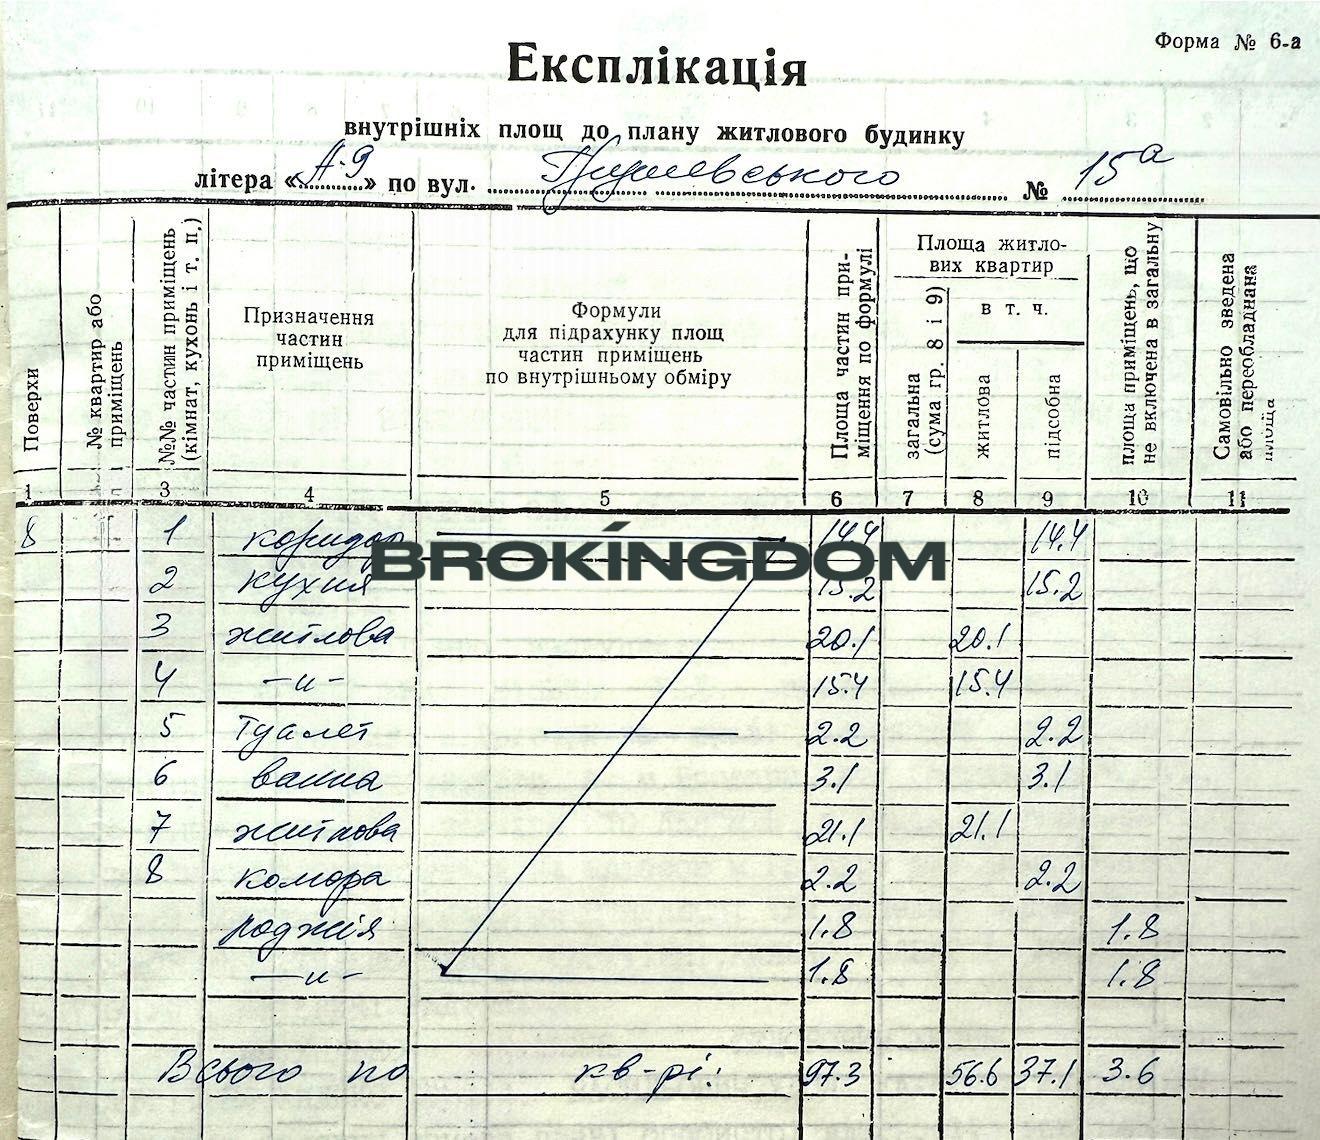 Форма № 6-а
Експлікація
внутрішніх площ до плану житлового будинку
літера «А-9» по вул. № 15а
Поверхи
№ квартир або приміщень
№№ частин приміщень (кімнат, кухонь і т. п.)
Призначення частин приміщень
Формули для підрахунку площ частин приміщень по внутрішньому обміру
Площа частин приміщення по формулі
Площа житлових квартир
загальна (сума гр. 8 і 9)
в т. ч.
житлова
підсобна
площа приміщень, що не включена в загальну
Самовільно зведена або переобладнана площа
1 3 4 5 6 7 8 9 10 11
8 1 коридор 14.4 14.4
BROKINGDOM
2 кухня 15.2 15.2
3 житлова 20.1 20.1
4 —„— 15.4 15.4
5 туалет 2.2 2.2
6 ванна 3.1 3.1
7 житлова 21.1 21.1
8 комора 2.2 2.2
лоджія 1.8 1.8
—„— 1.8 1.8
Всього по кв-рі: 97.3 56.6 37.1 3.6